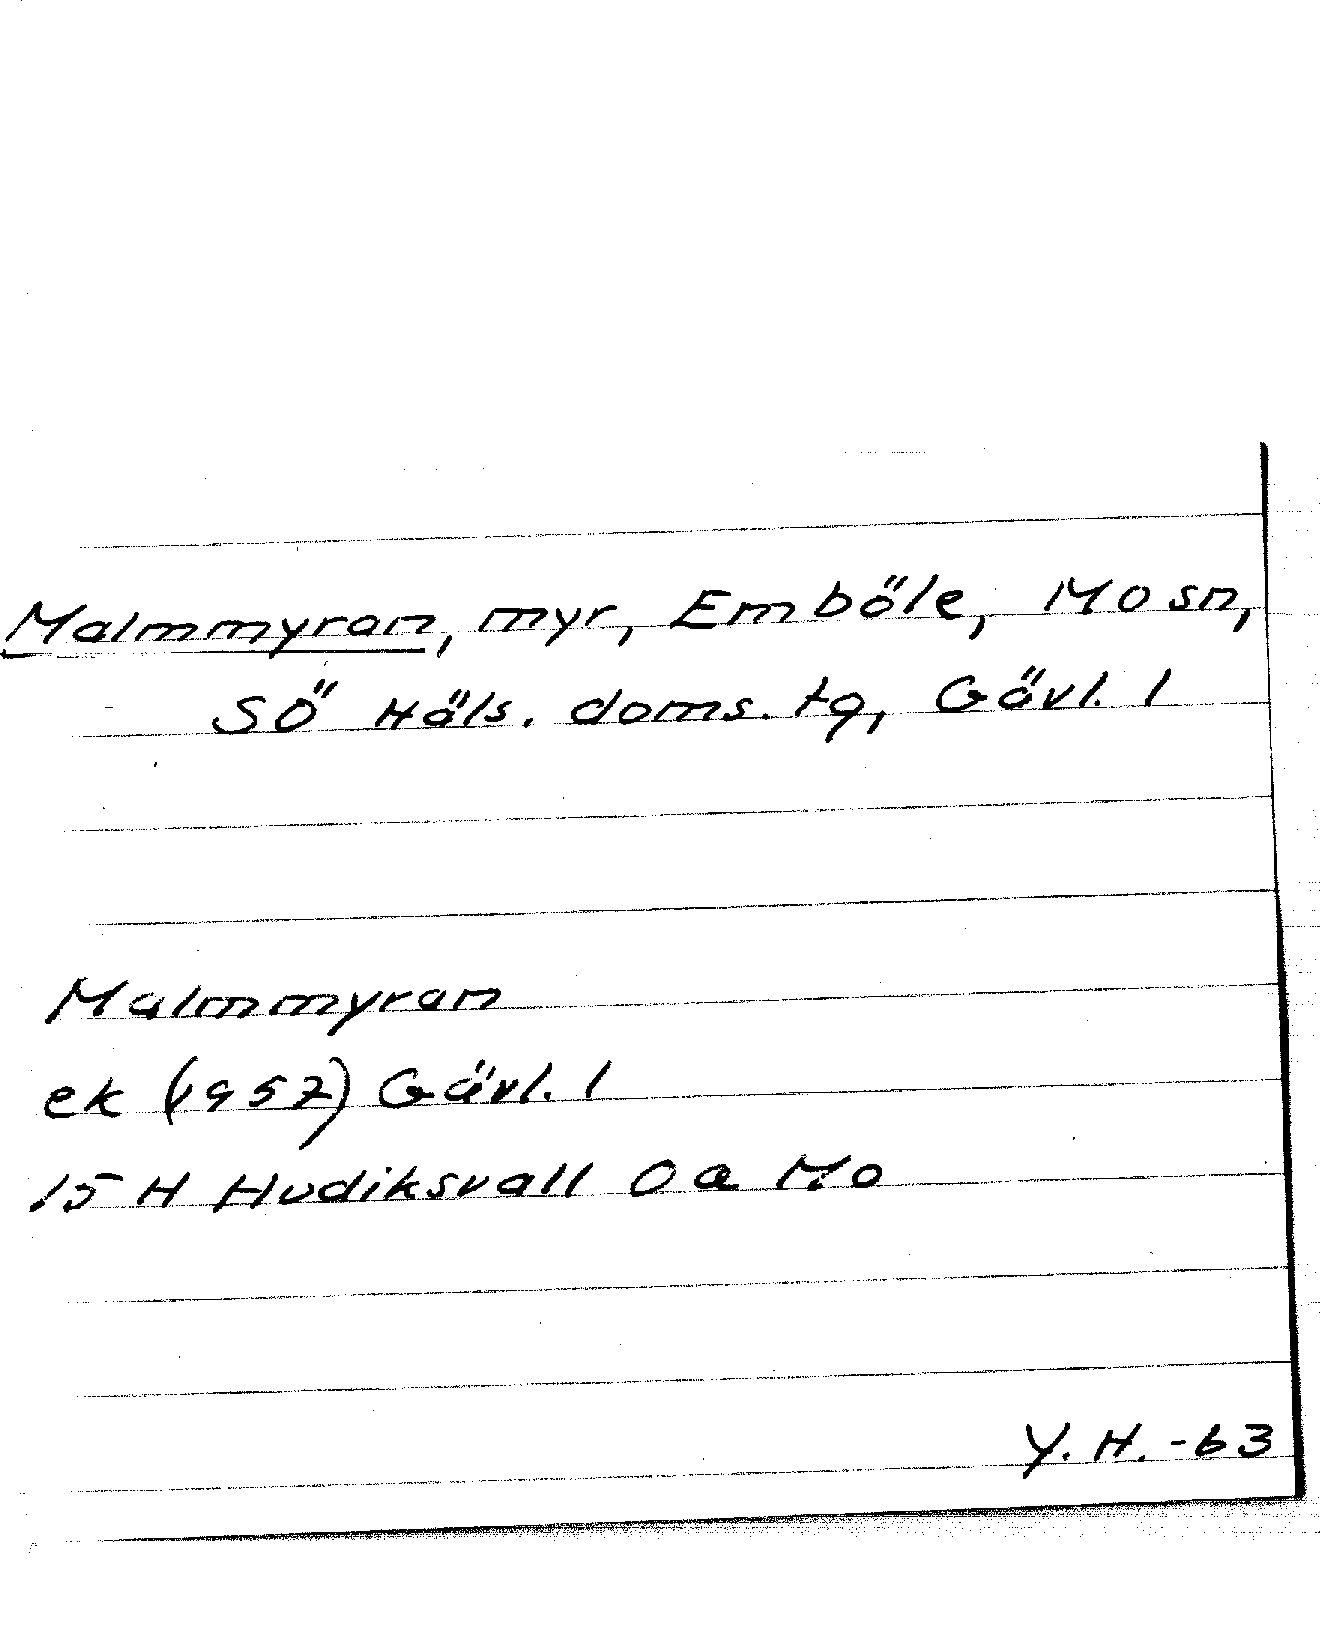 Malmmyran, myr, Emböle, Mo sn,
SÖ Häls. doms. tg, Gävl. l
Malmmyran
ek (1957) Gävl. l
15 H Hudiksvall 0 a Mo
Y. H. -63